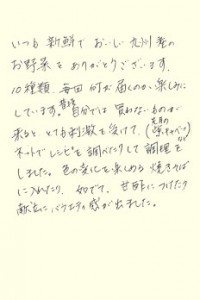 いつも新鮮でおいしい九州産の
お野菜をありがとうございます。
10種類、毎回何が届くのか楽しみに
しています。普段自分では買わないものが
来ると、とても刺激を受けて、
ネットでレシピを調べたりして調理を
しました。色の変化を楽しめる焼きそば
に入れたり、ゆでて、甘酢につけたり
献立にバラエティ感が出ました。